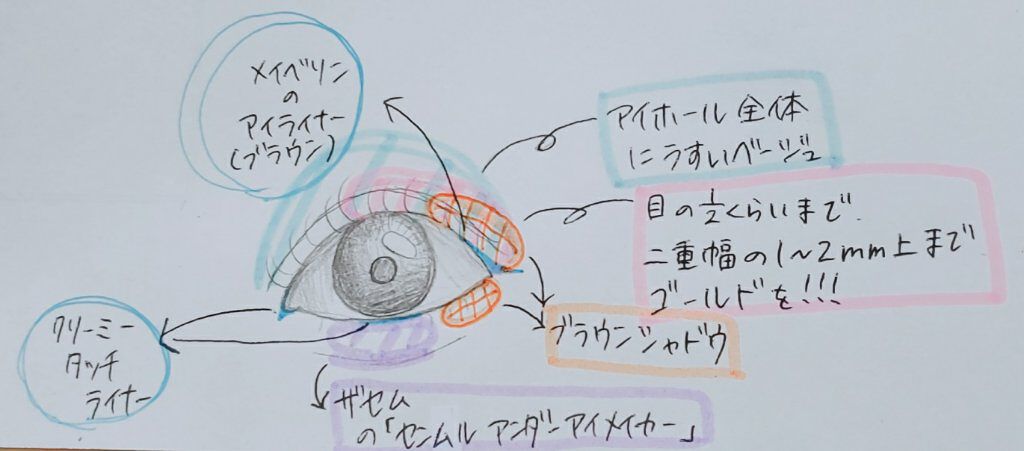 メイベリン
の
アイライナー
(ブラウン)
アイホール全体
にうすいベージュ
目の1/2くらいまで
二重幅の1~2mm上まで
ゴールドを!!!
ブラウンシャドウ
クリーミー
タッチ
ライナー
ザセム
の「センムル アンダーアイメイカー」